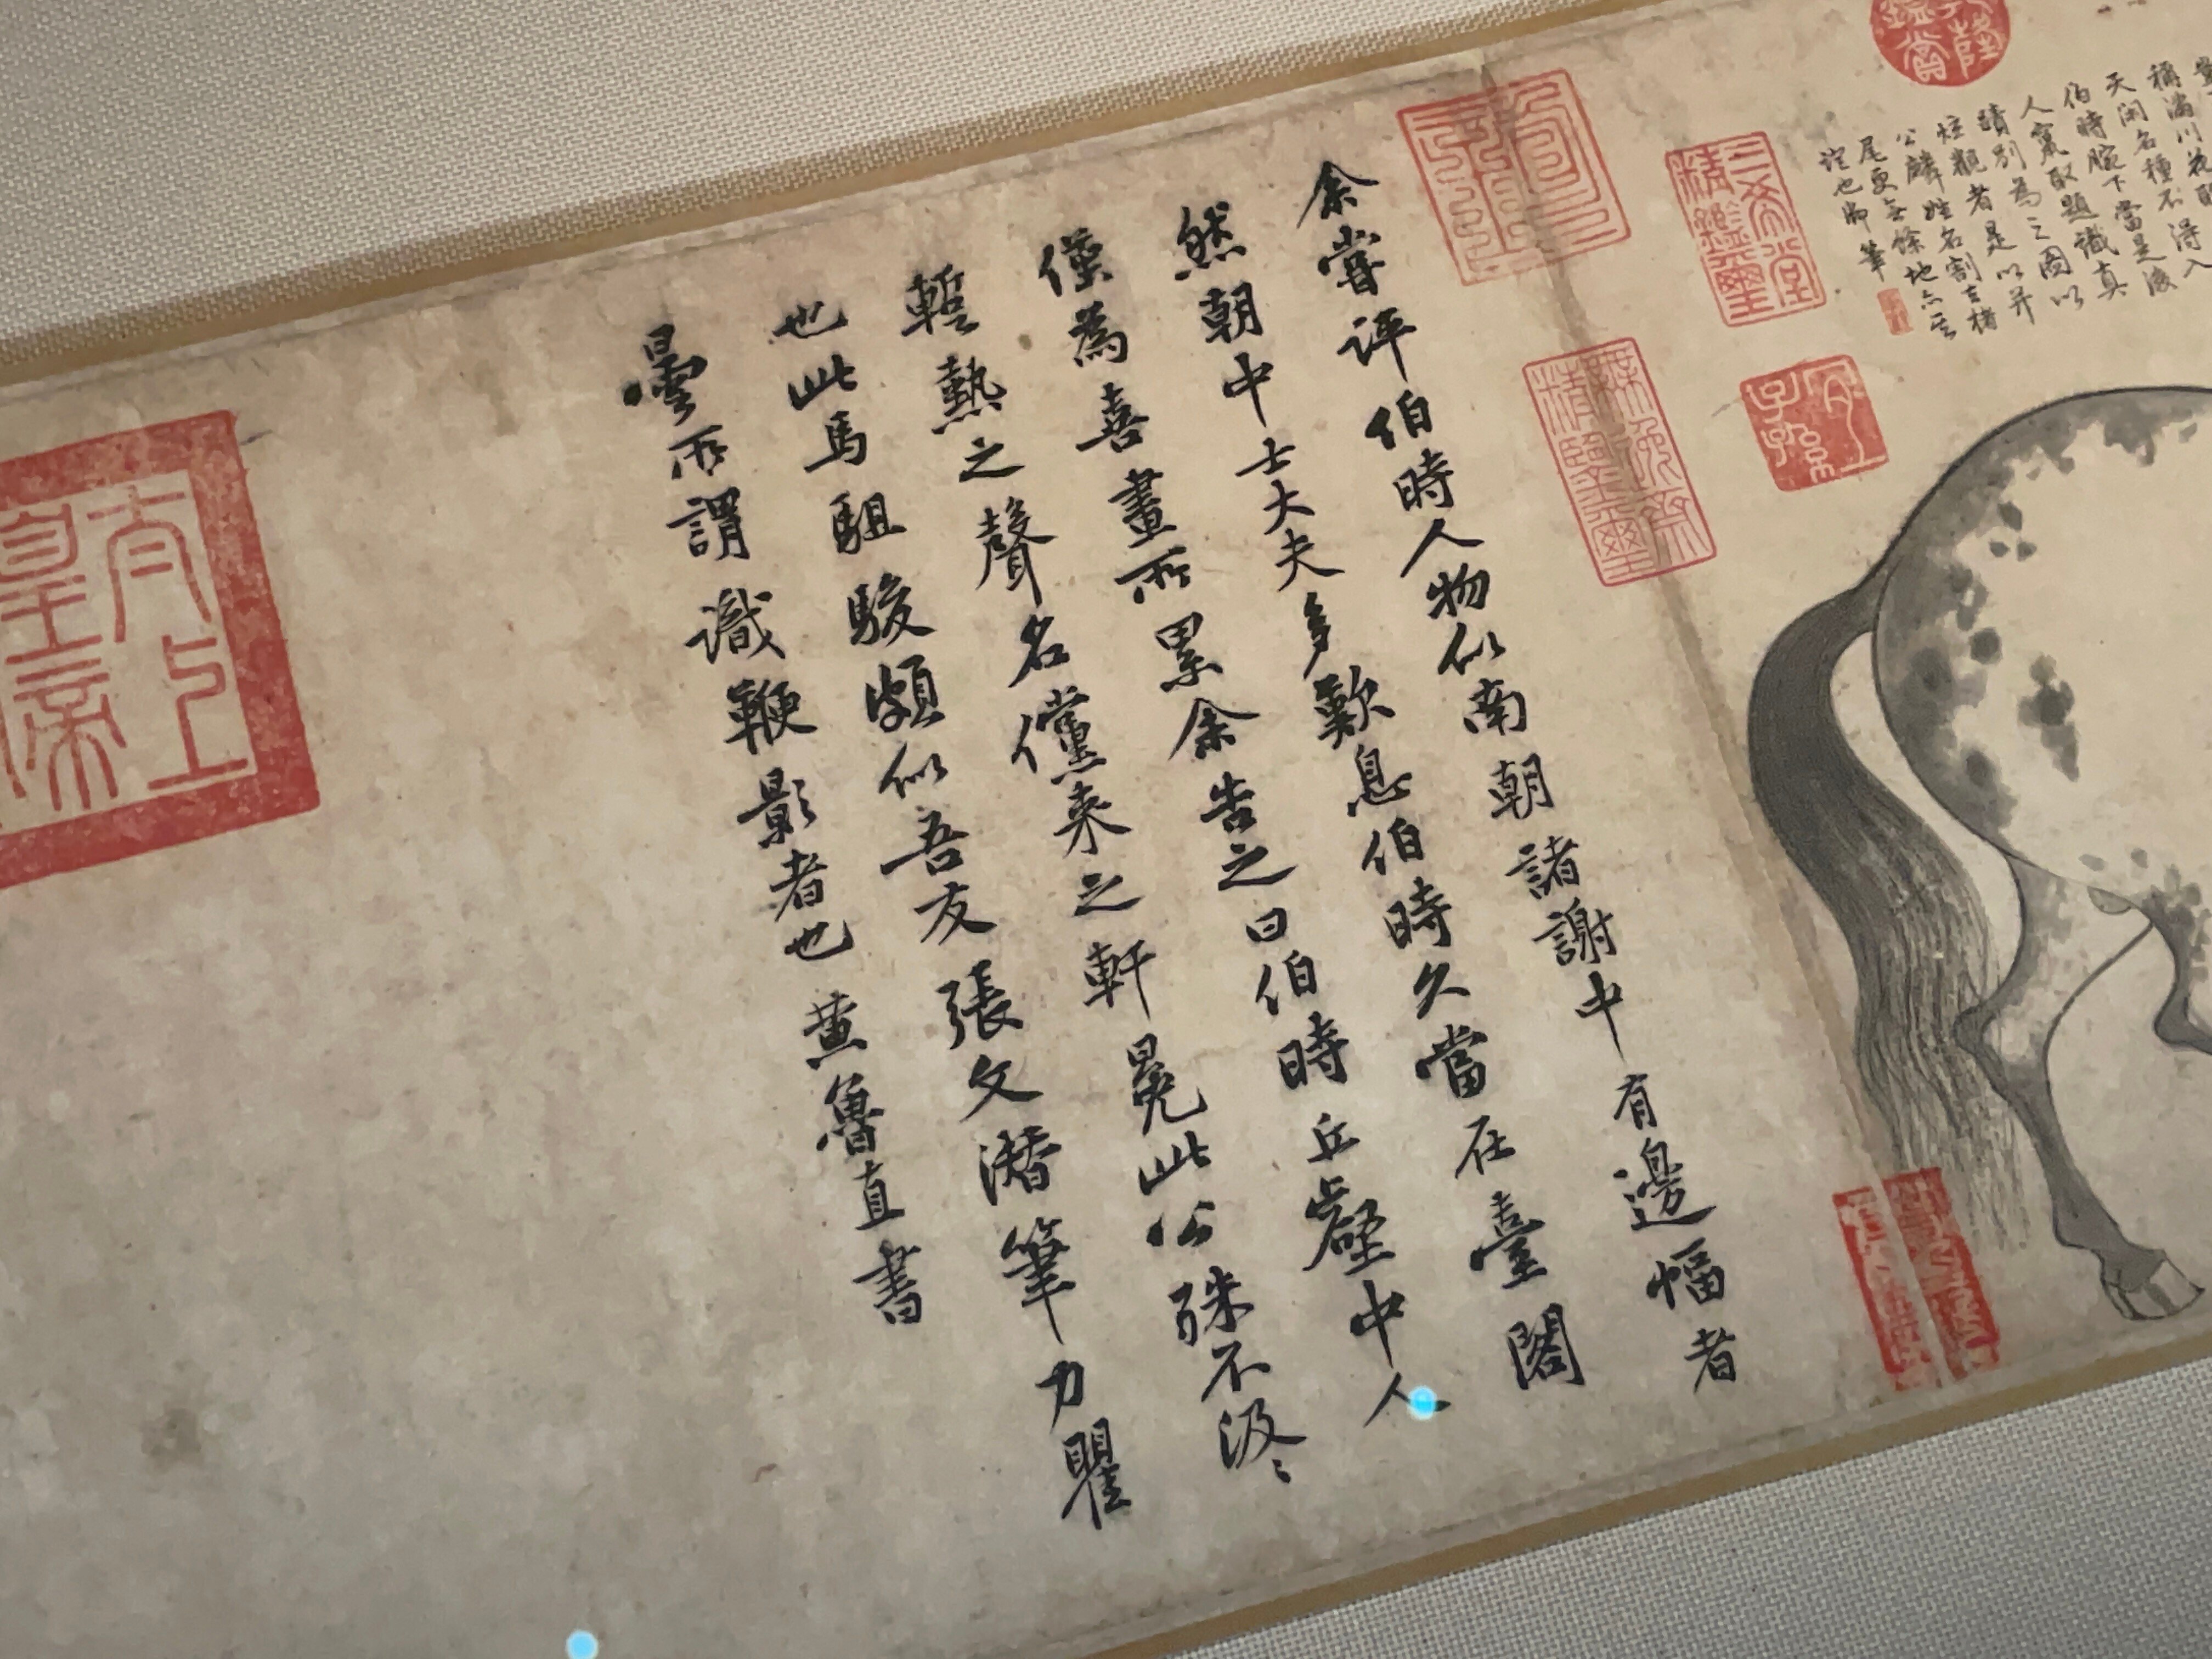 稱滿川花
天閑名種不得入
伯時腕下當是液
人窠臼題識真
晴別為之圖以
炷觀者是以并
公麟姓名割去楮
尾更無餘地亦云
詮也御筆
三希堂精鑑璽
宜子孫
余嘗評伯時人物似南朝諸謝中有邊幅者
然朝中士大夫多歎息伯時久當在臺閣
僅為喜畫所累余告之曰伯時丘壑中人
暫熱之聲名儻来之軒冕此公殊不汲〻
也此馬駔駿頗似吾友張文潛筆力瞿
曇所謂識鞭影者也黄魯直書
太上
皇帝